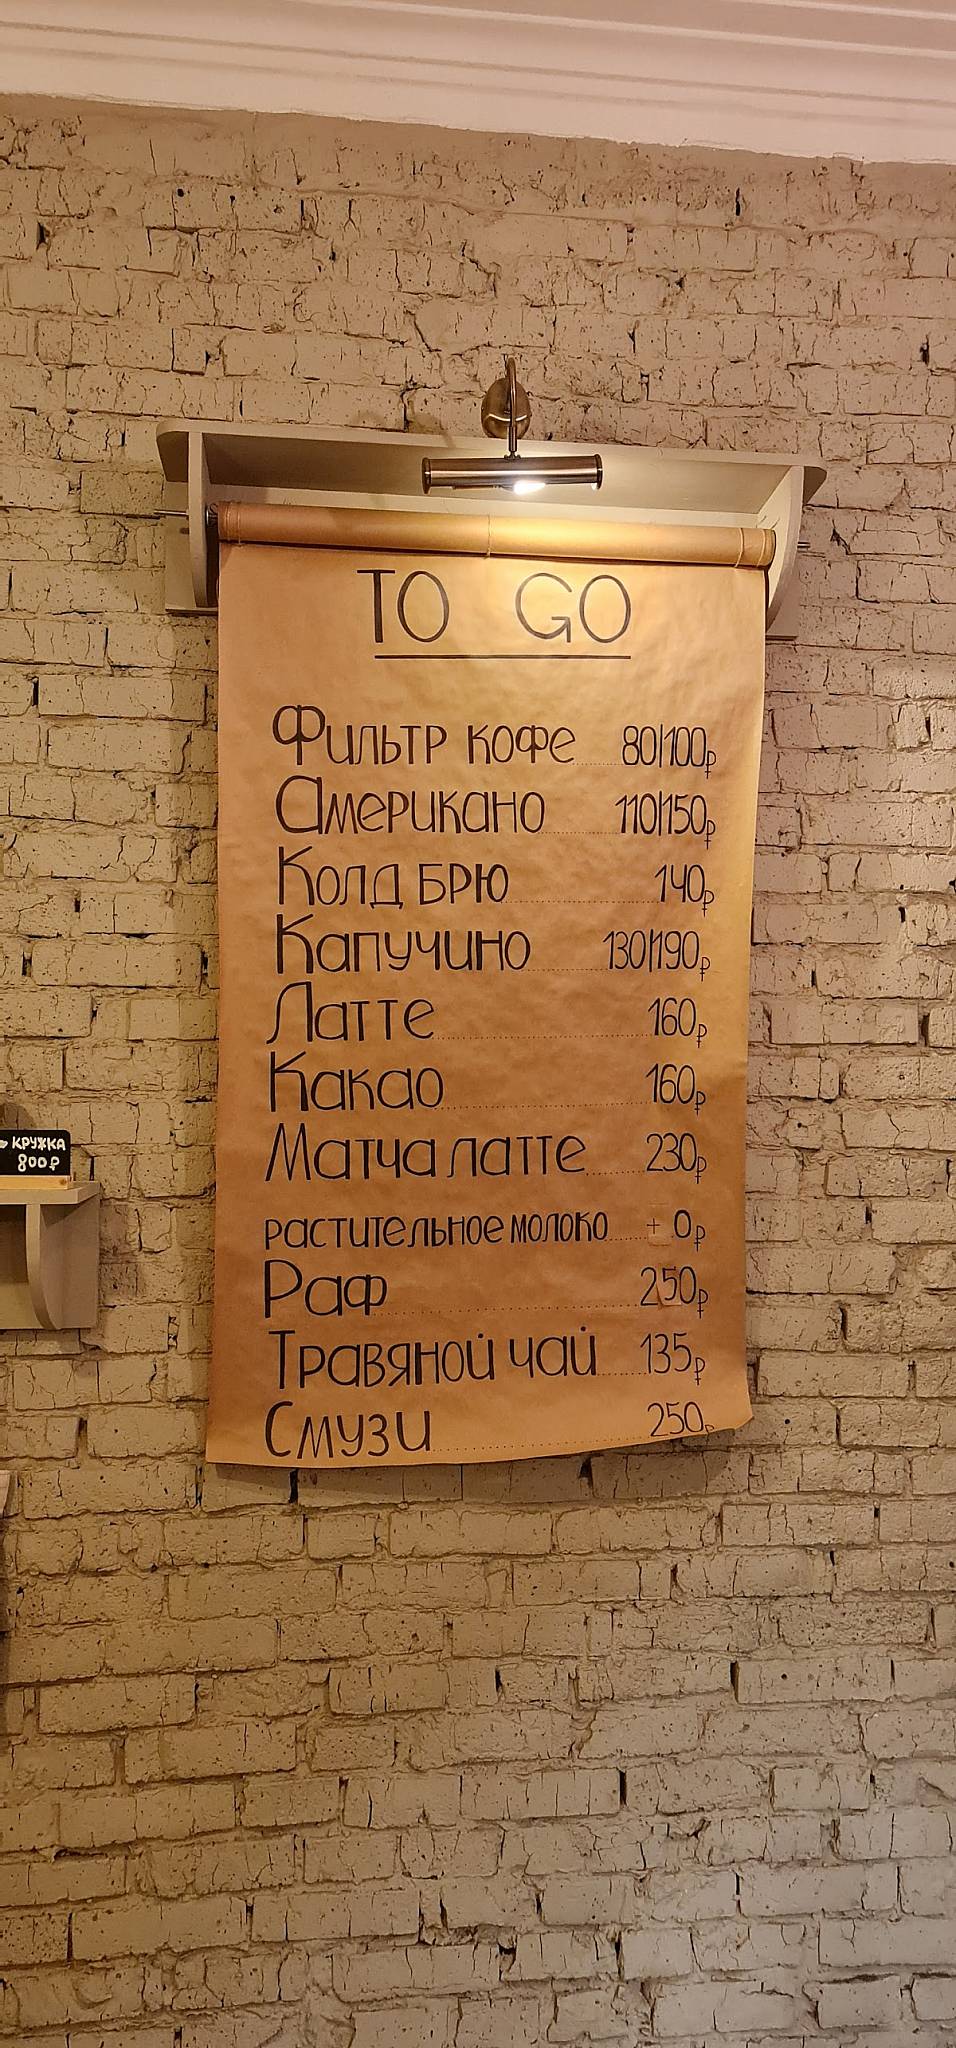 TO GO
Фильтр кофе 80|100₽
Американо 110|150₽
Колд брю 140₽
Капучино 130|190₽
Латте 160₽
Какао 160₽
Матча латте 230₽
растительное молоко + 0₽
Раф 250₽
Травяной чай 135₽
Смузи 250₽
КРУЖКА
800₽